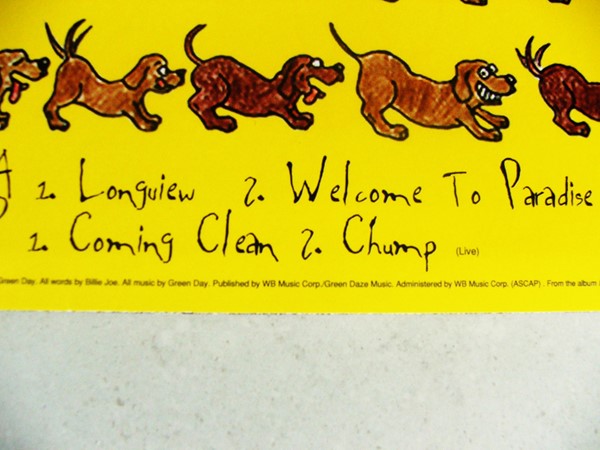 1. Longview 2. Welcome To Paradise
1. Coming Clean 2. Chump (Live)
Green Day. All words by Billie Joe. All music by Green Day. Published by WB Music Corp./Green Daze Music. Administered by WB Music Corp. (ASCAP). From the album